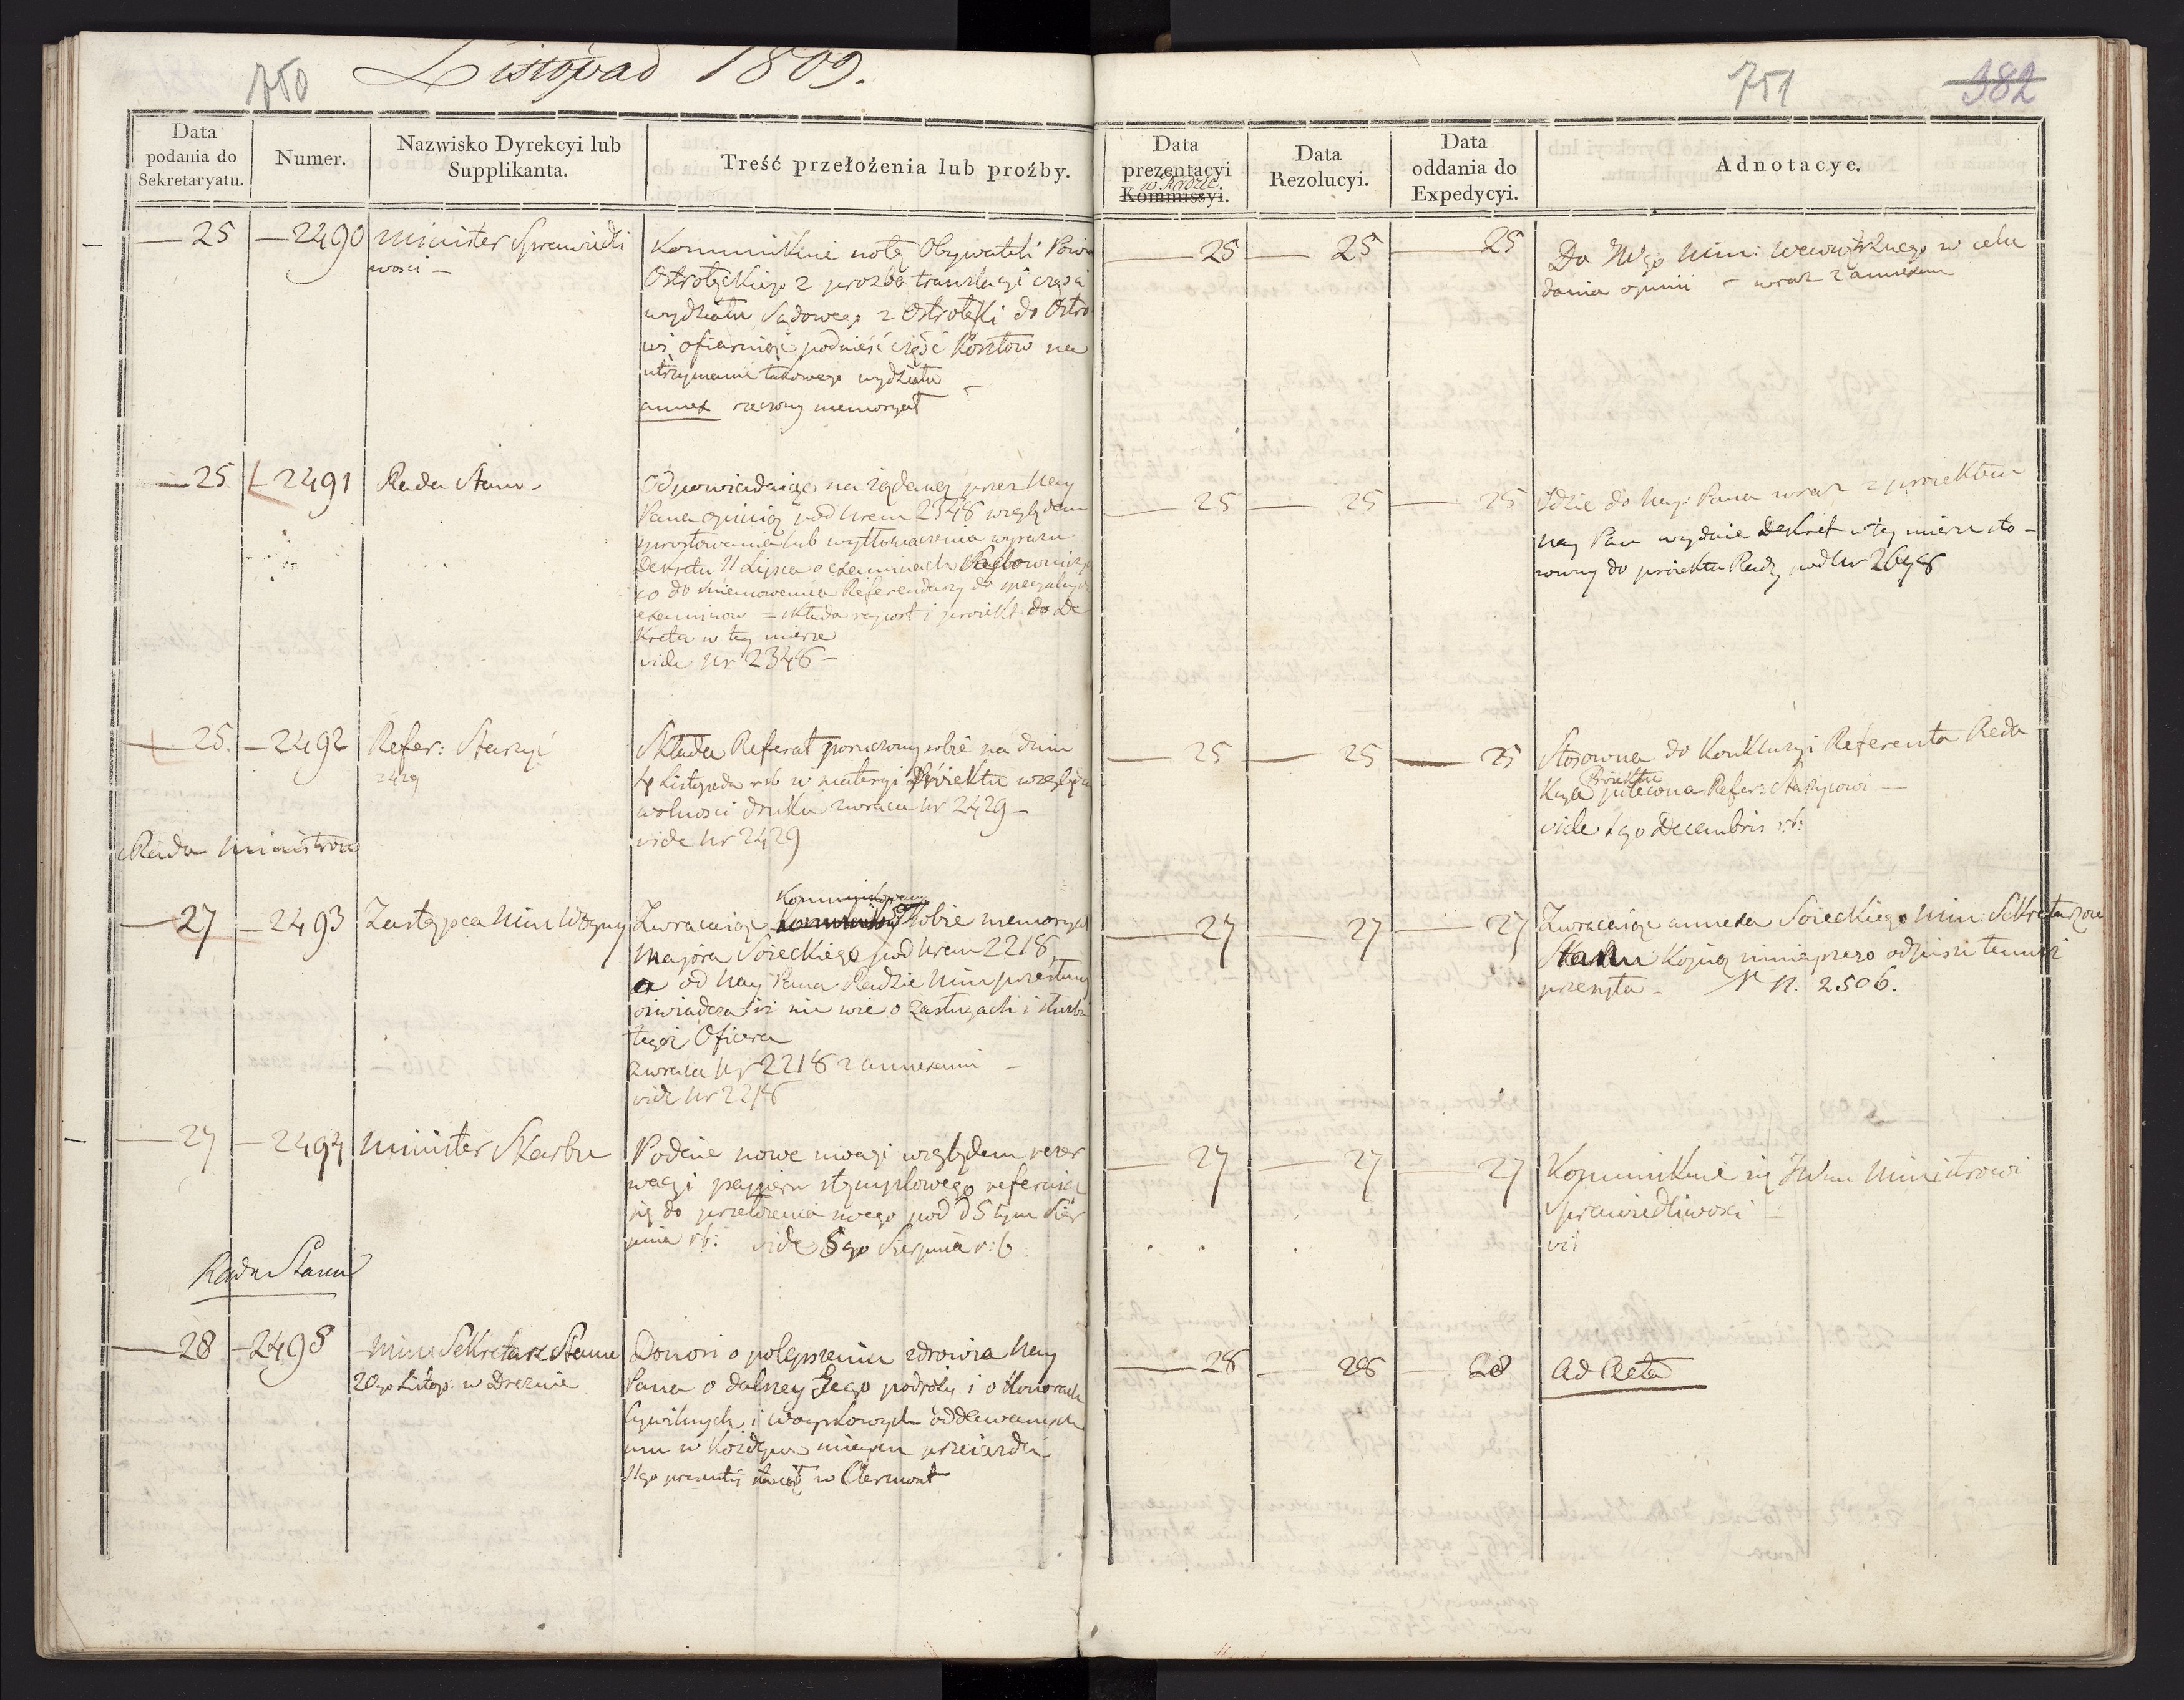 750
Listopad 1809.
751
382
Data podania do Sekretaryatu.
Numer.
Nazwisko Dyrekcyi lub Supplikanta.
Treść przełożenia lub proźby.
Data prezentacyi w Radzie. Kommissyi.
Data Rezolucyi.
Data oddania do Expedycyi.
Adnotacye.
25
2490
Minister Sprawiedli
wosci
Kommunikuie notę Obywateli Pow
Ostrołęckiego z prozbą translacyi części
wydziału Sądowego z Ostrołęki do Ostro
wi, ofiaruiąc podnieść część Kosztow na
utrzymanie takowego wydziału
annex rzeczony memoryał
25
25
25
Do JWgo Min: Wewnętrznego w celu
dania opinii – wraz z annexem
25
2491
Rada Stanu
Odpowiadaiąc na żądaney przez Nay
Pana opinią pod Nrem 2348 względem
sprostowania lub wytłomaczenia wyrazu
Dekretu 11 Lipca o examinach
co do mienowania Referendarzy do specyalnych
examinow = składa raport i proiekt do De
kretu w tey mierze
vide Nr 2348 –
25
25
25
Idzie do Nay: Pana wraz z proiektem
Nay Pan wydaie Dekret w tey mierze sto–
sowny do proiektu Rady pod Nr 2698
25.
2492
Refer: Staszyc
2429
Składa Referat poruczony sobie na dniu
4 Listopada rb w materyi Proiektu względem
wolnosci druku zwraca Nr 2429 –
vide Nr 2429
25
25
25
Stosowna do Konkluzyi Referenta Reda
kcya Proiektu polecona Refer: Staszycowi –
vide 1go Decembris r.b:
Rada Ministrow
27
2493
Zastępca Min Woyny
Zwracaiąc Kommunikowany sobie memoryał
Majora Soieckiego pod Nrem 2218,
a od Nay Pana Radzie Min przesłany
oswiadcza iż nie wie o zasługach i służbie
tegoż Oficera
zwraca Nr 2218 z annexami –
vide Nr 2218
27
27
27
Zwracaiąc annexa Soieckiego Min: Sekretarzowi
Stanu Kopią ninieyszego odpisu temuż
przesyła – N. 2506.
27
2494
Minister Skarbu
Podaie nowe uwagi względem rezer
wacyi papieru stęmplowego referuiąc
się do przełożenia swego pod d 5tym Sier
pnia rb: vide 5go Sierpnia r:b:
27
27
27
Kommunikuie się JWmu Ministrowi
Sprawiedliwosci –
vi
Rada Stanu
28
2495
Min: Sekretarz Stanu
20go Listop. w Dreznie
Donosi o polepszeniu zdrowia Nay
Pana o dalszey Jego podróży i o Honorach
Cywilnych i Woyskowych oddawanych
mu w Każdym mieyscu przeiazdu
11go praesentis stanął w Clermont
28
28
28
Ad Acta